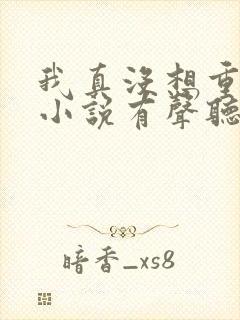 我真没想重
小说有声听
暗香_xs8